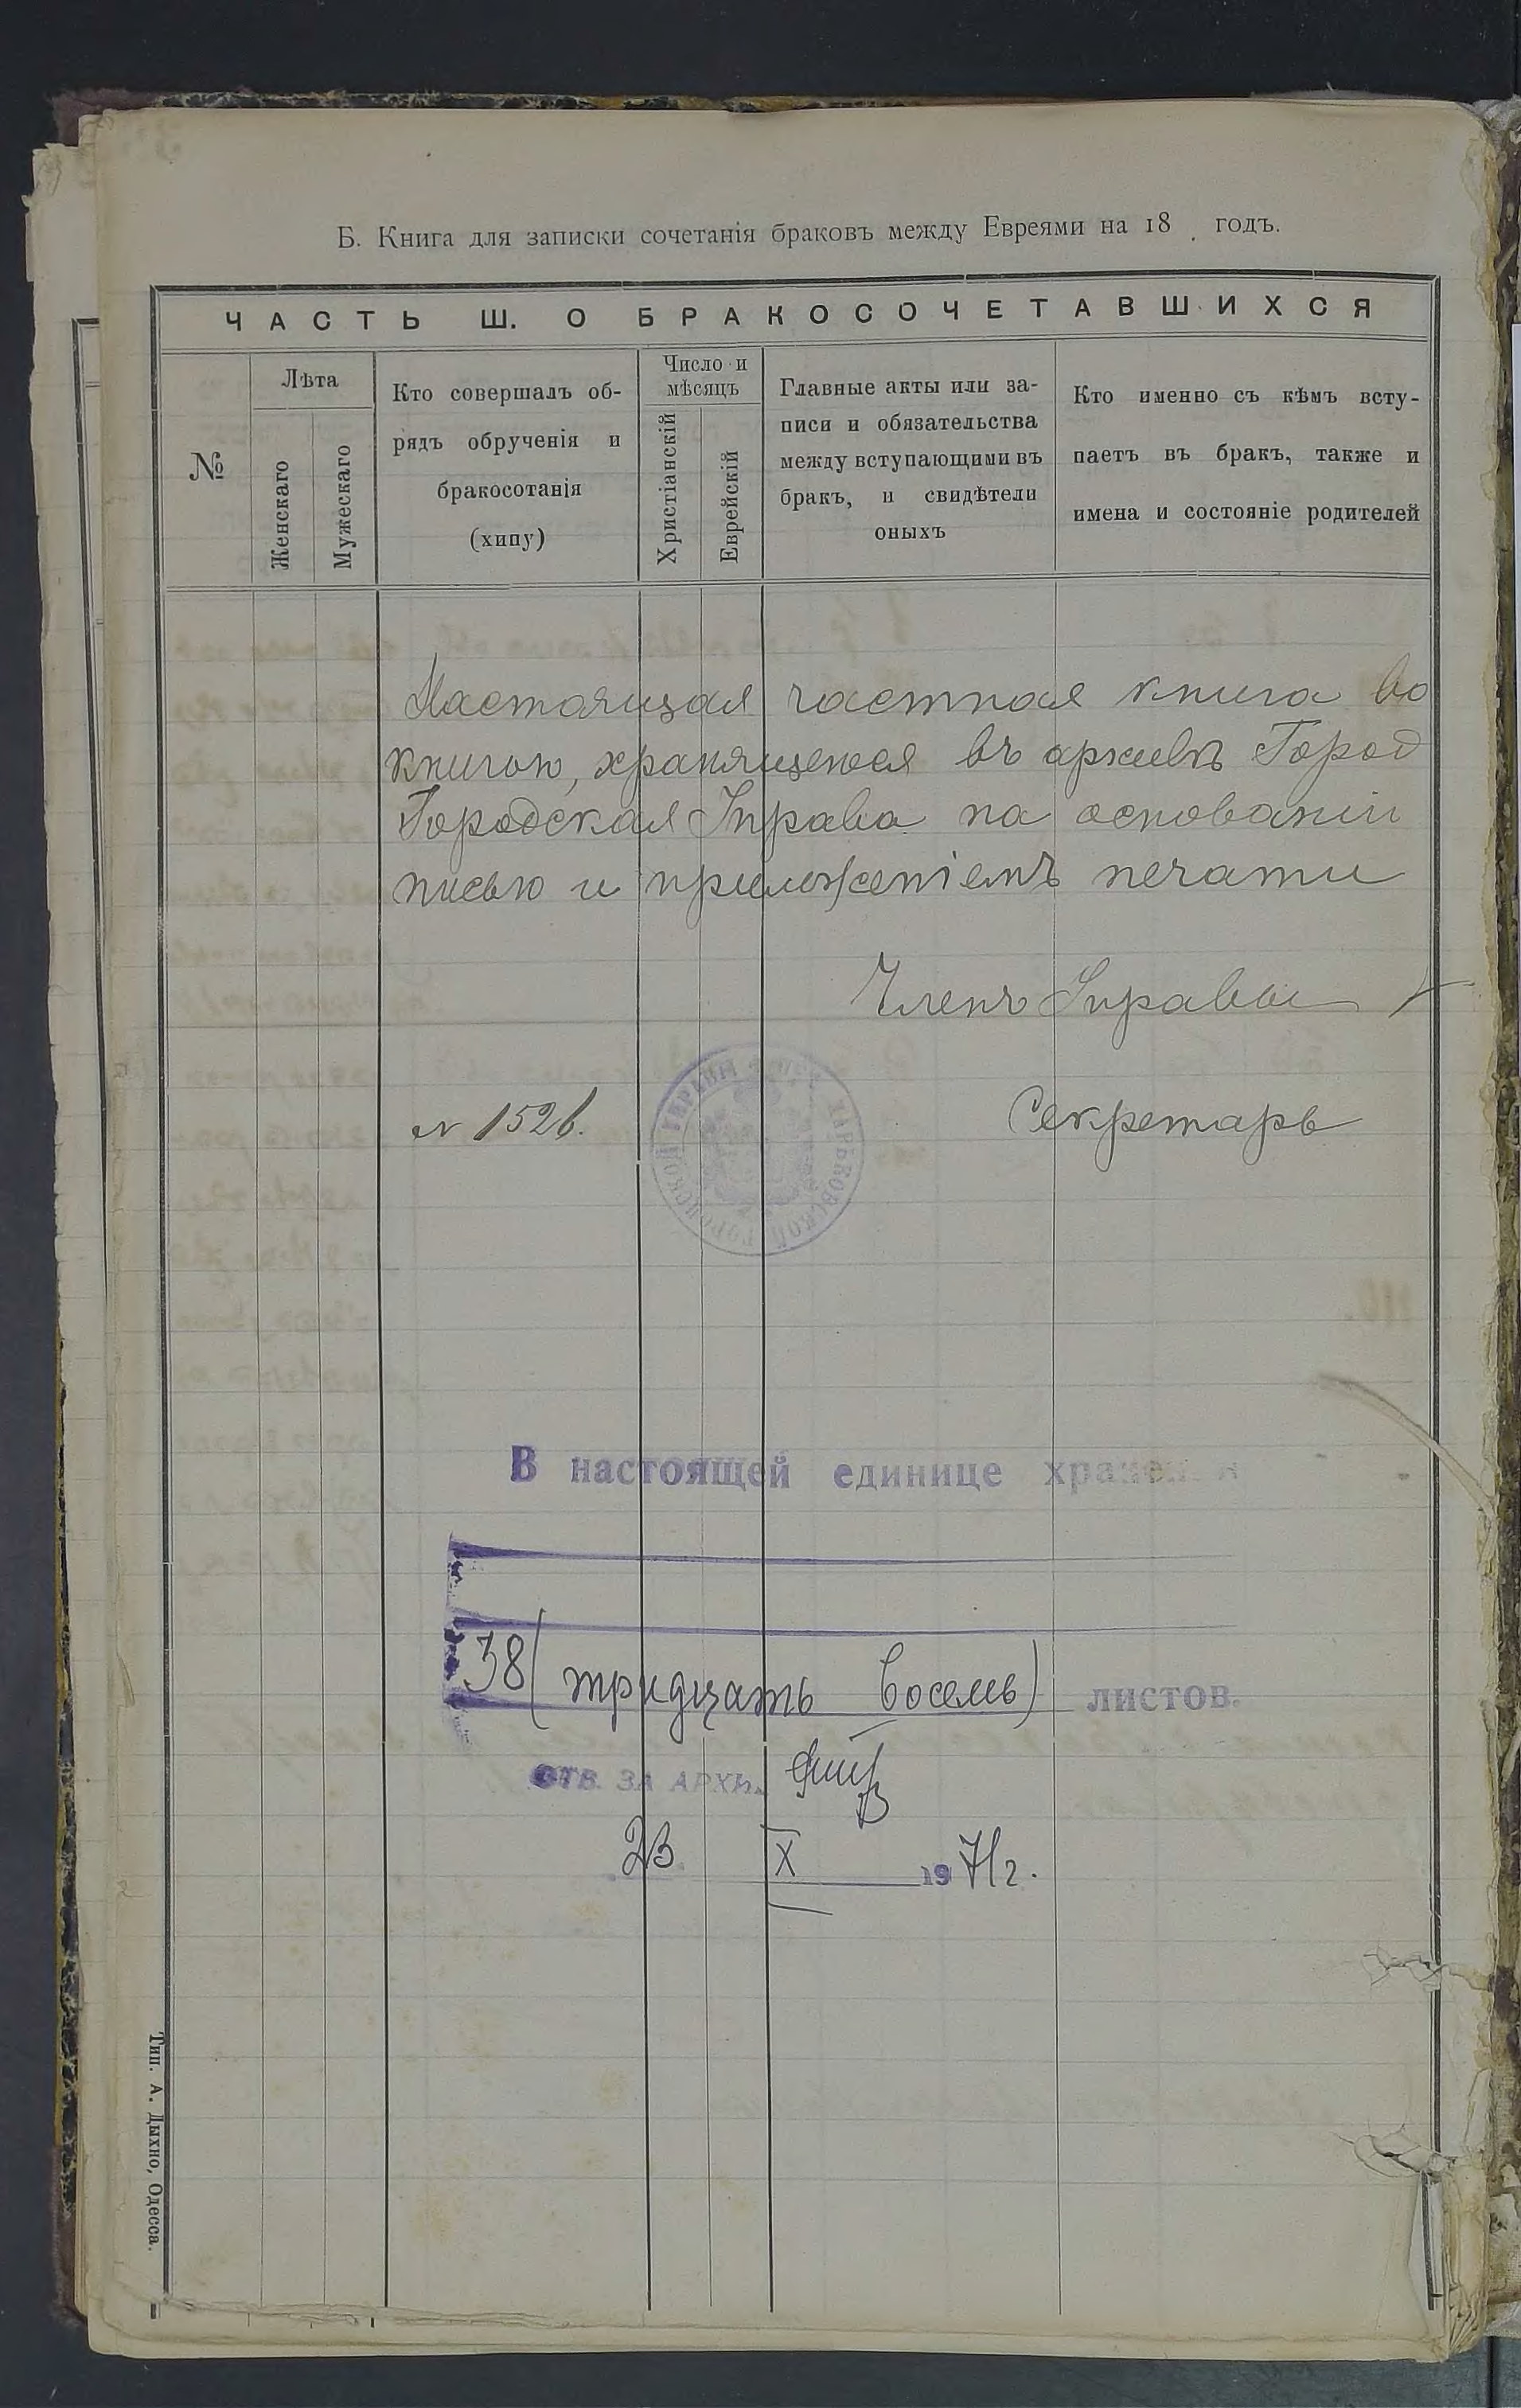 Б. Книга для записки сочетанія браковъ между Евреями на 18 . годъ.
ЧАСТЬ Ш. О БРАКОСОЧЕТАВШИХСЯ
№
Лѣта
Женскаго
Мужескаго
Кто совершалъ об-
рядъ обрученія и
бракосотанія
(хипу)
Число и
мѣсяцъ
Христіанскій
Еврейскій
Главные акты или за-
писи и обязательства
между вступающими въ
бракъ, и свидѣтели
оныхъ
Кто именно съ кѣмъ всту-
паетъ въ бракъ, также и
имена и состояніе родителей
Настоящая частная книга во
книгою, хранящеюся въ архивѣ Город
Городская Управа на основаніи
писью и приложеніемъ печати
Членъ Управы
№ 1526.
Секретарь
ХАРЬКОВСКОЙ ГОРОДСКОЙ УПРАВЫ
В настоящей единице хранения
38 (тридцать восемь) листов.
ОТВ. ЗА АРХИВ
23 X 1971г.
Тип. А. Дыхно, Одесса.